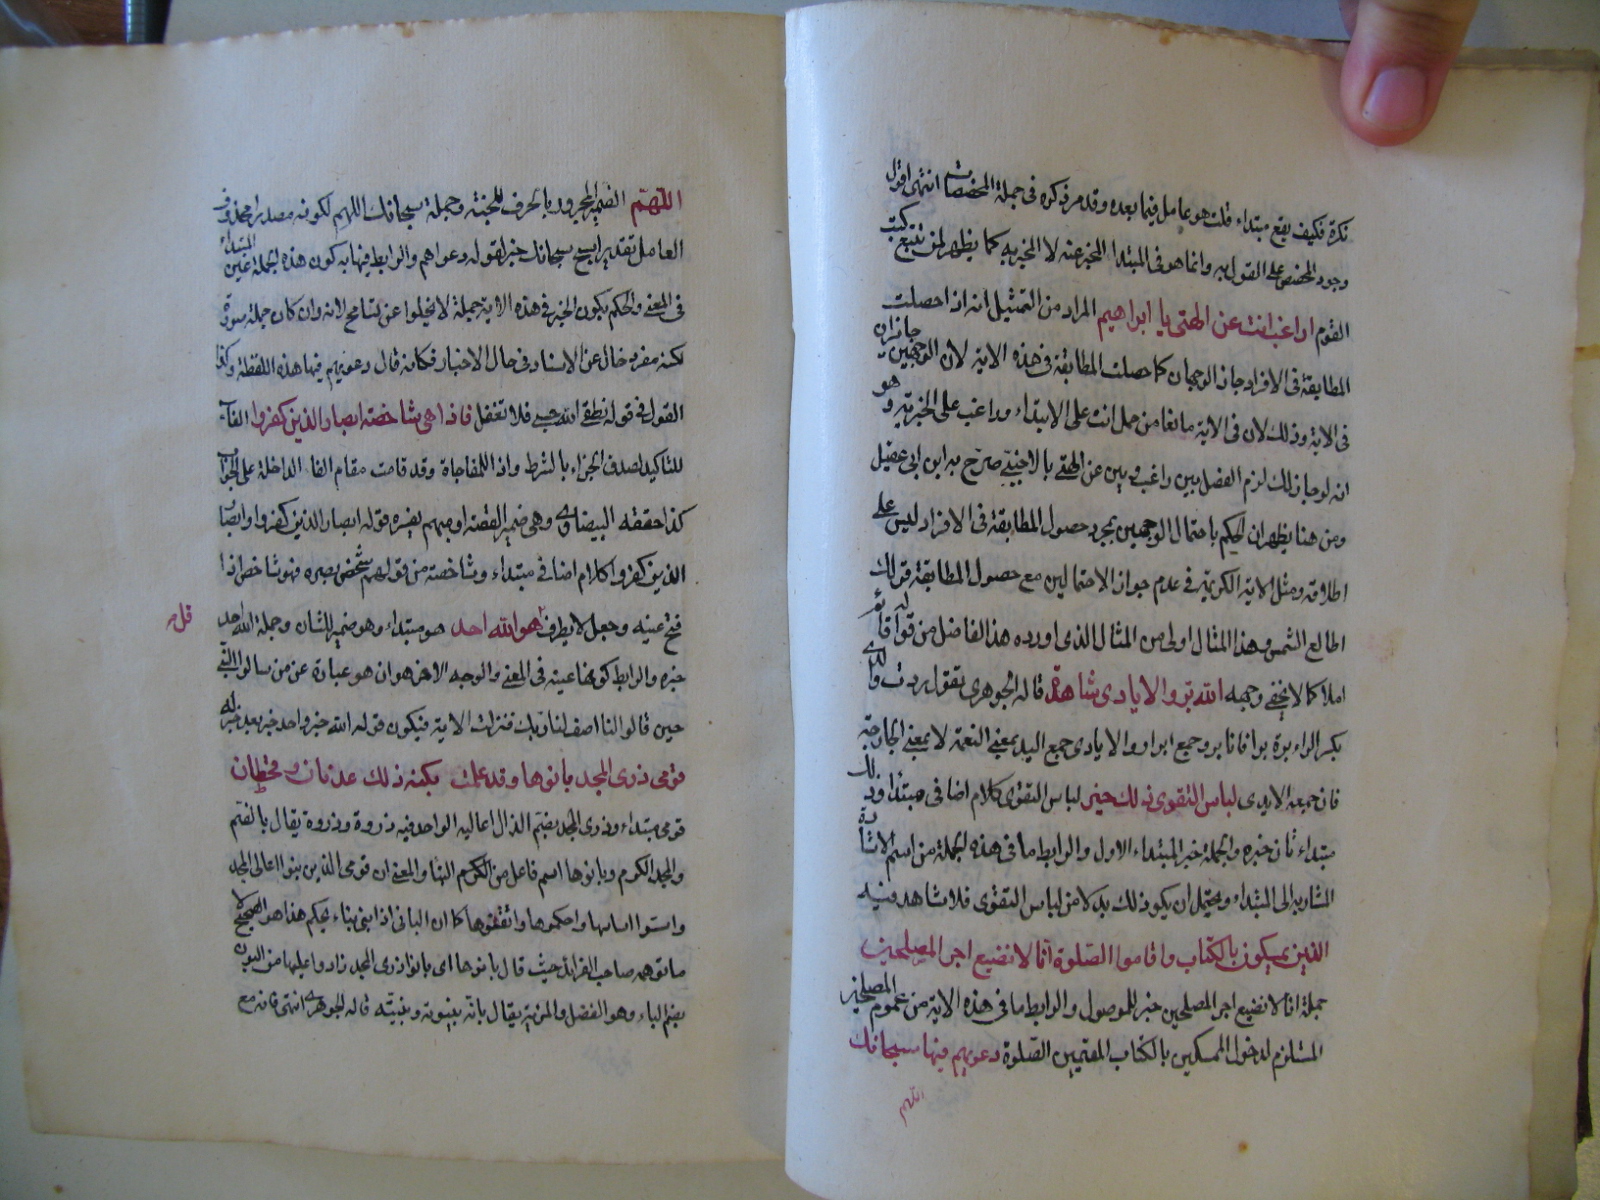 نكرة فكيف يقع مبتداء قلت هو عامل فيما بعده وقد مر ذكره في جملة المخصصات انتهى اقول
وجود المخصص على القول به وانما هو في المبتدا المخبر عنه لا المخبر به كما يظهر لمن تتبع كتب
القوم اراغب انت عن الهتى يا ابراهيم المراد من التمثيل انه اذا حصلت
المطابقة في الافراد جاز الوجهان كما حصلت المطابقة في هذه الاية لان الوجهين جائزان
في الاية وذلك لان في الاية مانعا من حمل انت على الابتداء وراغب على الخبرية وهو
انه لو جاز ذلك لزم الفصل بين راغب وبين عن الهتي بالاجنبي صرح به ابن ابي عقيل
ومن هنا يظهر ان الحكم باحتمال الوجهين بمجرد حصول المطابقة في الافراد ليس على
اطلاقه ومثل الاية الكريمة في عدم جواز الاحتمالين مع حصول المطابقة قولك
اطالع الشمس وهذا المثال اولى من المثال الذي اورده هذا الفاضل من قوله اقائم
املا كما لا يخفى وجهه الله بر والايادى شاهدة قاله الجوهرى تقول بررت والدى
بكسر الراء برة برا فانا بر وجمع ابرار والايادى جمع اليد بمعنى النعمة لا بمعنى الجارحة
فان جمعه الايدى لباس التقوى ذلك خير لباس التقوى كلام اضافى مبتدأ وذلك
مبتداء ثان خبره والجملة خبر المبتداء الاول والرابط ما في هذه الجملة من اسم الاشارة
المشار به الى المبتداء ويحتمل ان يكون ذلك بدلا من لباس التقوى فلا شاهد فيه
الذين يمسكون بالكتاب واقاموا الصلوة انا لا نضيع اجر المصلحين
جملة انا لا نضيع اجر المصلحين خبر للموصول والرابط ما في هذه الاية من عموم المصلحين
المستلزم لدخول الممسكين بالكتاب المقيمين الصلوة دعويهم فيها سبحانك
اللهم
اللهم الضمير المجرور بالحرف للجنة وجملة سبحانك اللهم لكونه مصدرا محذوف
العامل تقديرا سبح سبحانك خبر لقوله دعواهم والرابط فيها به كون هذه الجملة عين المبتداء
في المعنى والحكم بكون الخبر في هذه الاية جملة لا يخلوا عن تسامح لانه وان كان جملة صورة
لكنه مفرد خال عن الاسناد في حال الاخبار فكانه قال دعويهم فيها هذه اللفظة وكذا
القول في قوله نطقى الله حسبى فلا تغفل فاذا هى شاخصة ابصار الذين كفروا الفاء
للتاكيد لصدق الجزاء بالشرط واذا للمفاجاة وقد قامت مقام الفا الداخلة على الجزاء
كذا حققه البيضاوى وهى ضمير القصة او مبهم يفسره قوله ابصار الذين كفروا وابصار
الذين كفروا كلام اضافى مبتداء وشاخصة من قولهم شخص بصره فهو شاخص اذا
فتح عينيه وجعل لا يطرف هو الله احد هو مبتداء وهو ضمير للشان وجملة الله احد
قل
خبره والرابط كونها عينه في المعنى والوجه الاخر هو ان هو عبارة عن من سالوا النبى
حين قالوا لنا اصف لنا ربك فنزلت الاية فيكون قوله الله خبر واحد خبر بعد خبر له
قومى ذرى المجد بانوها وقد علمت بكنه ذلك عدنان وقحطان
قومى مبتداء وذرى المجد بضم الذال اعاليه الواحد فيه ذروة وذروة يقال بالضم
والمجد الكرم وبانوها اسم فاعل من الكرم البنا والمعنى ان قومى الذين بنوا اعالى المجد
واسسوا اساسها واحكموها واتقنوها كما ان البانى اذا بنى بناء يحكم هذا هو الصحيح لا
ما توهمه صاحب الفرائد حيث قال بانوها اى بانوا ذرى المجد زادوا عليها من البون
بضم الباء وهو الفضل والمزية يقال بانه يبونه ويبينه قاله الجوهرى انتهى فانه مع